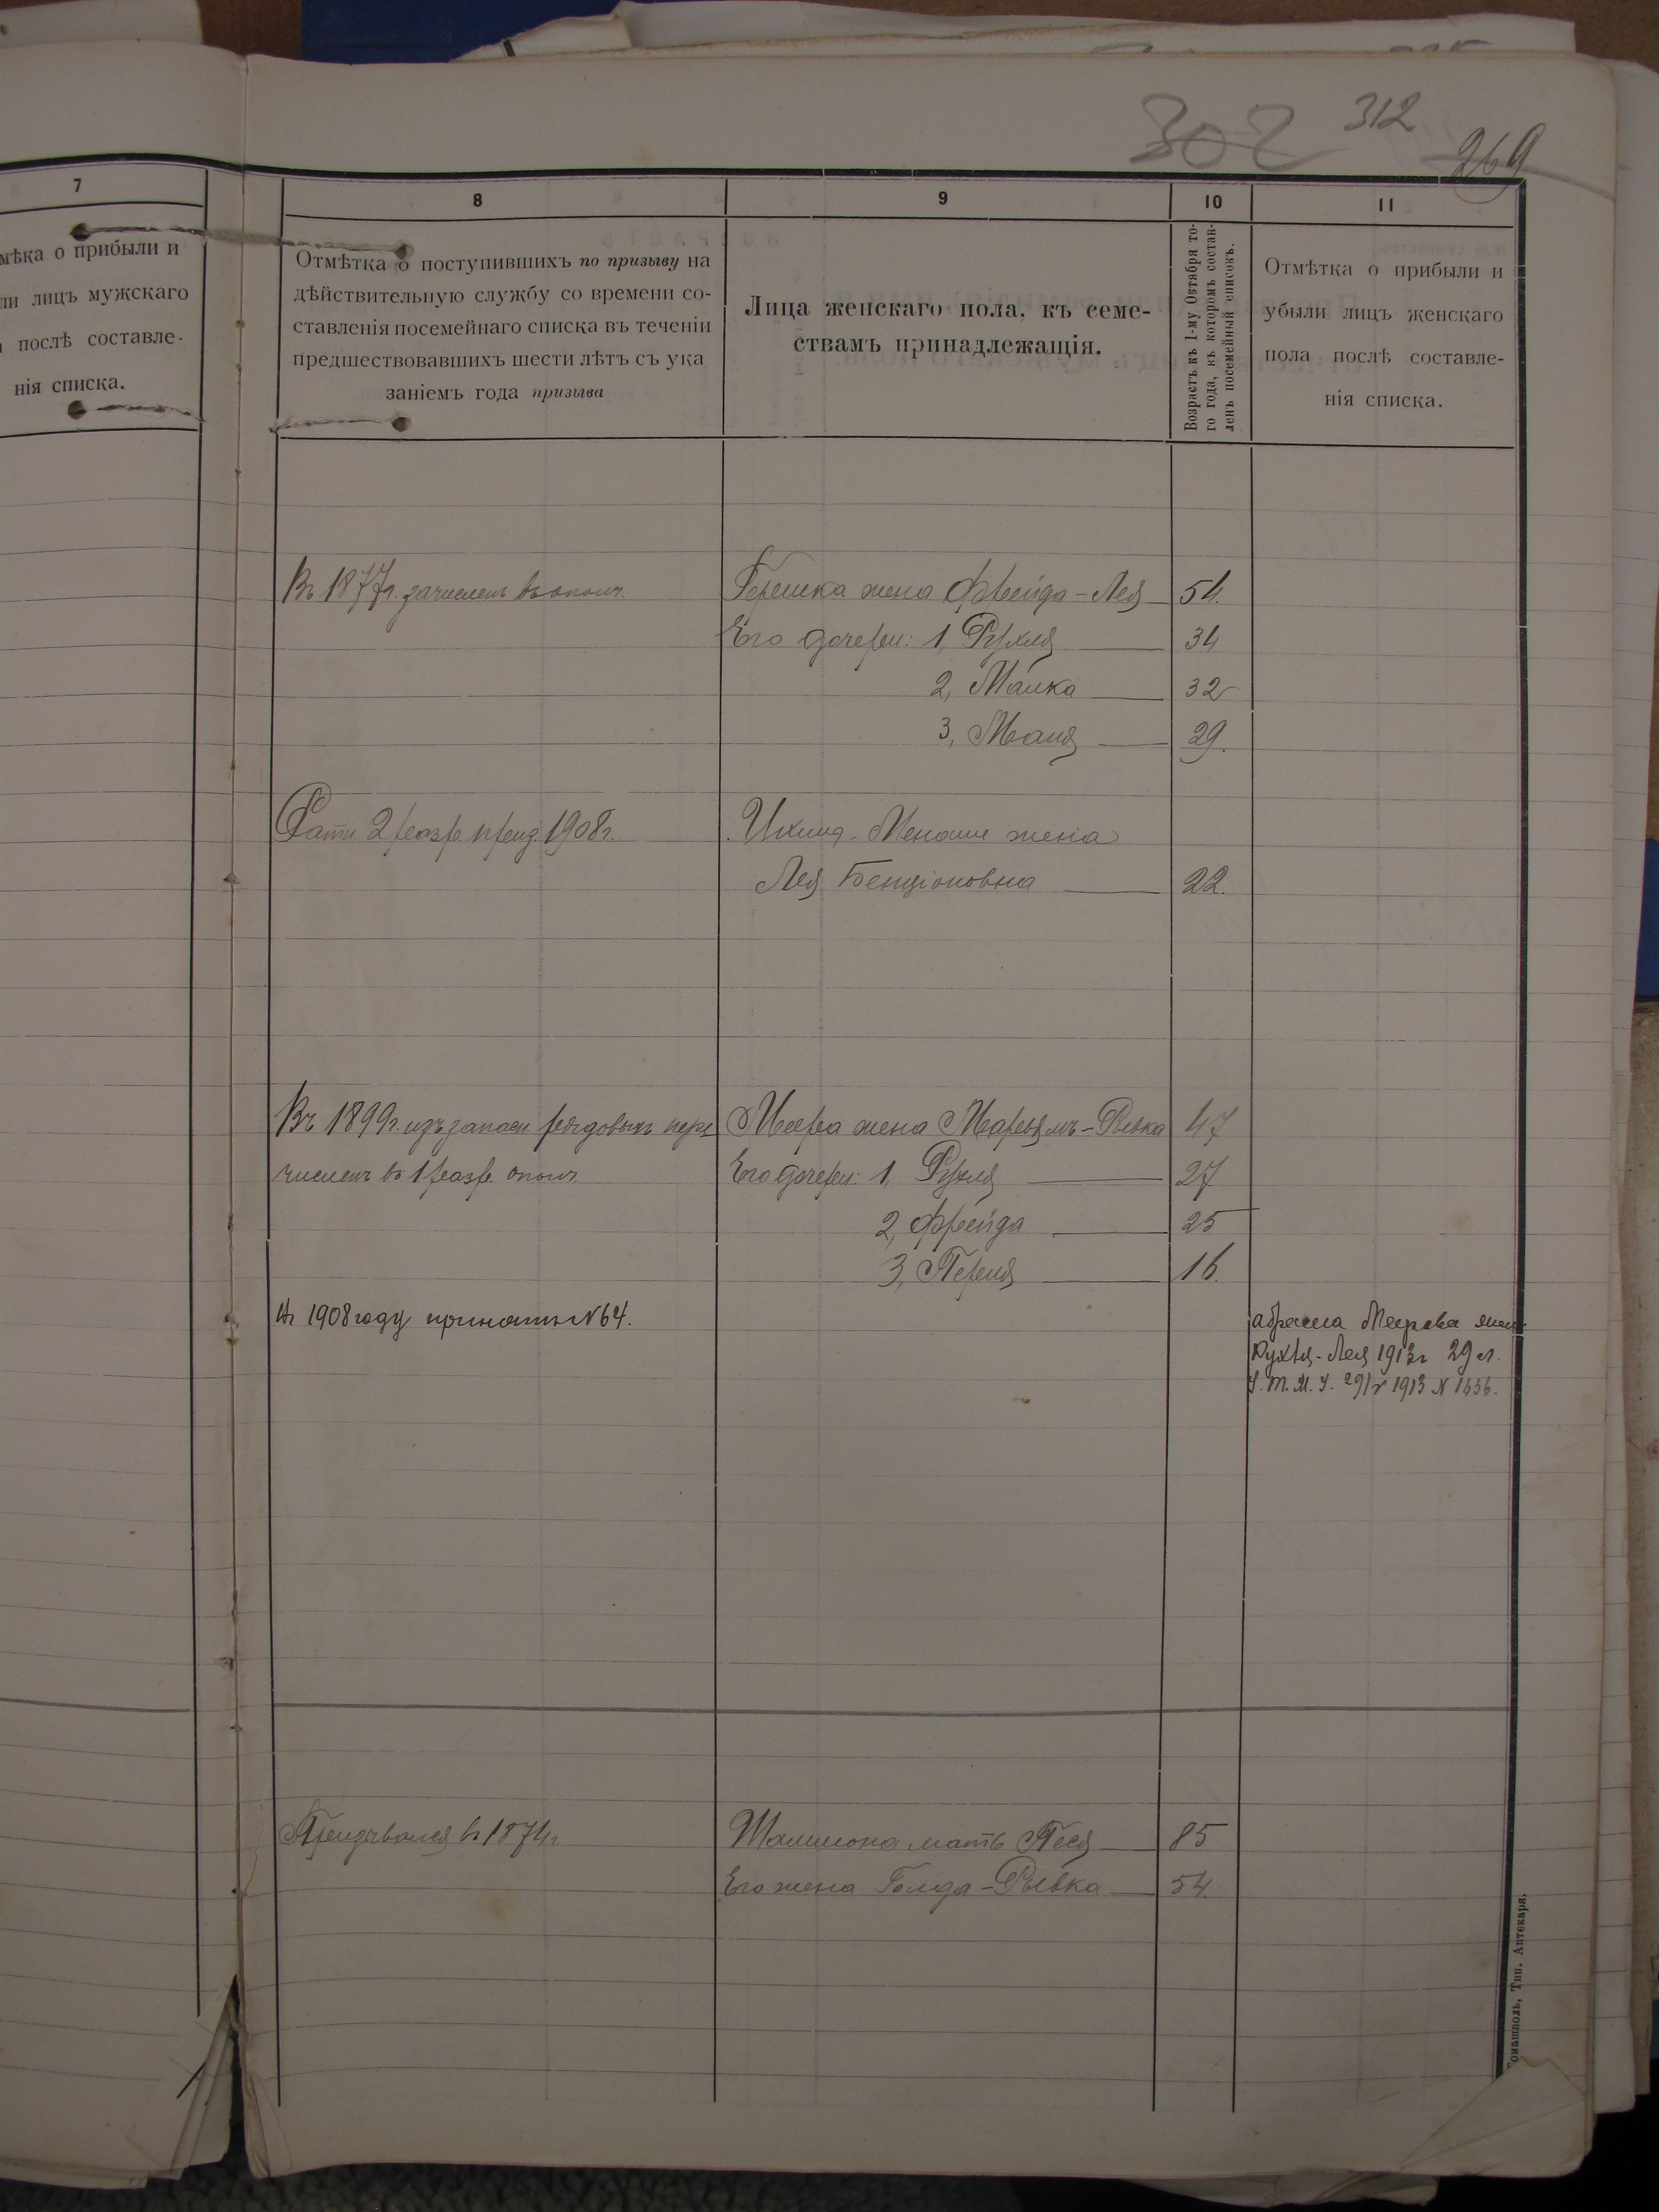 302 312
269
7
8
9
10
11
мѣка о прибыли и
ли лицъ мужскаго
послѣ составле-
нія списка.
Отмѣтка о поступившихъ по призыву на
дѣйствительную службу со времени со-
ставленія посемейнаго списка въ теченіи
предшествовавшихъ шести лѣтъ съ ука
заніемъ года призыва
Лица женскаго пола, къ семе-
ствамъ принадлежащія.
Возрастъ къ 1-му Октября то-
го года, въ которомъ состав-
ленъ посемейный списокъ.
Отмѣтка о прибыли и
убыли лицъ женскаго
пола послѣ составле-
нія списка.
Въ 1877г. зачисленъ въ ополч.
Гершка жена Фрейда-Лея 51.
Его дочери: 1, Рухля 34
2, Малка 32
3, Маня 29.
Ратн. 2 разр. 1908г.
Ихила-Менаше жена
Лея Бенціоновна 22.
Въ 1899г. изъ запаса рядовыхъ пере
Меера жена Марьямъ-Ривка 47
численъ въ 1 разр. ополч.
Его дочери: 1, Рухля 27
2, Фрейда 25
3, Перля 16.
Въ 1908 году принятъ N 64.
Абрама Меерова жена
Рухля-Лея 1913г 29 л.
1913 N
Призывался въ 1874г
Шлиома мать Песя 85
Его жена Голда-Ривка 54.
Томашполь, Тип. Аптекаря.